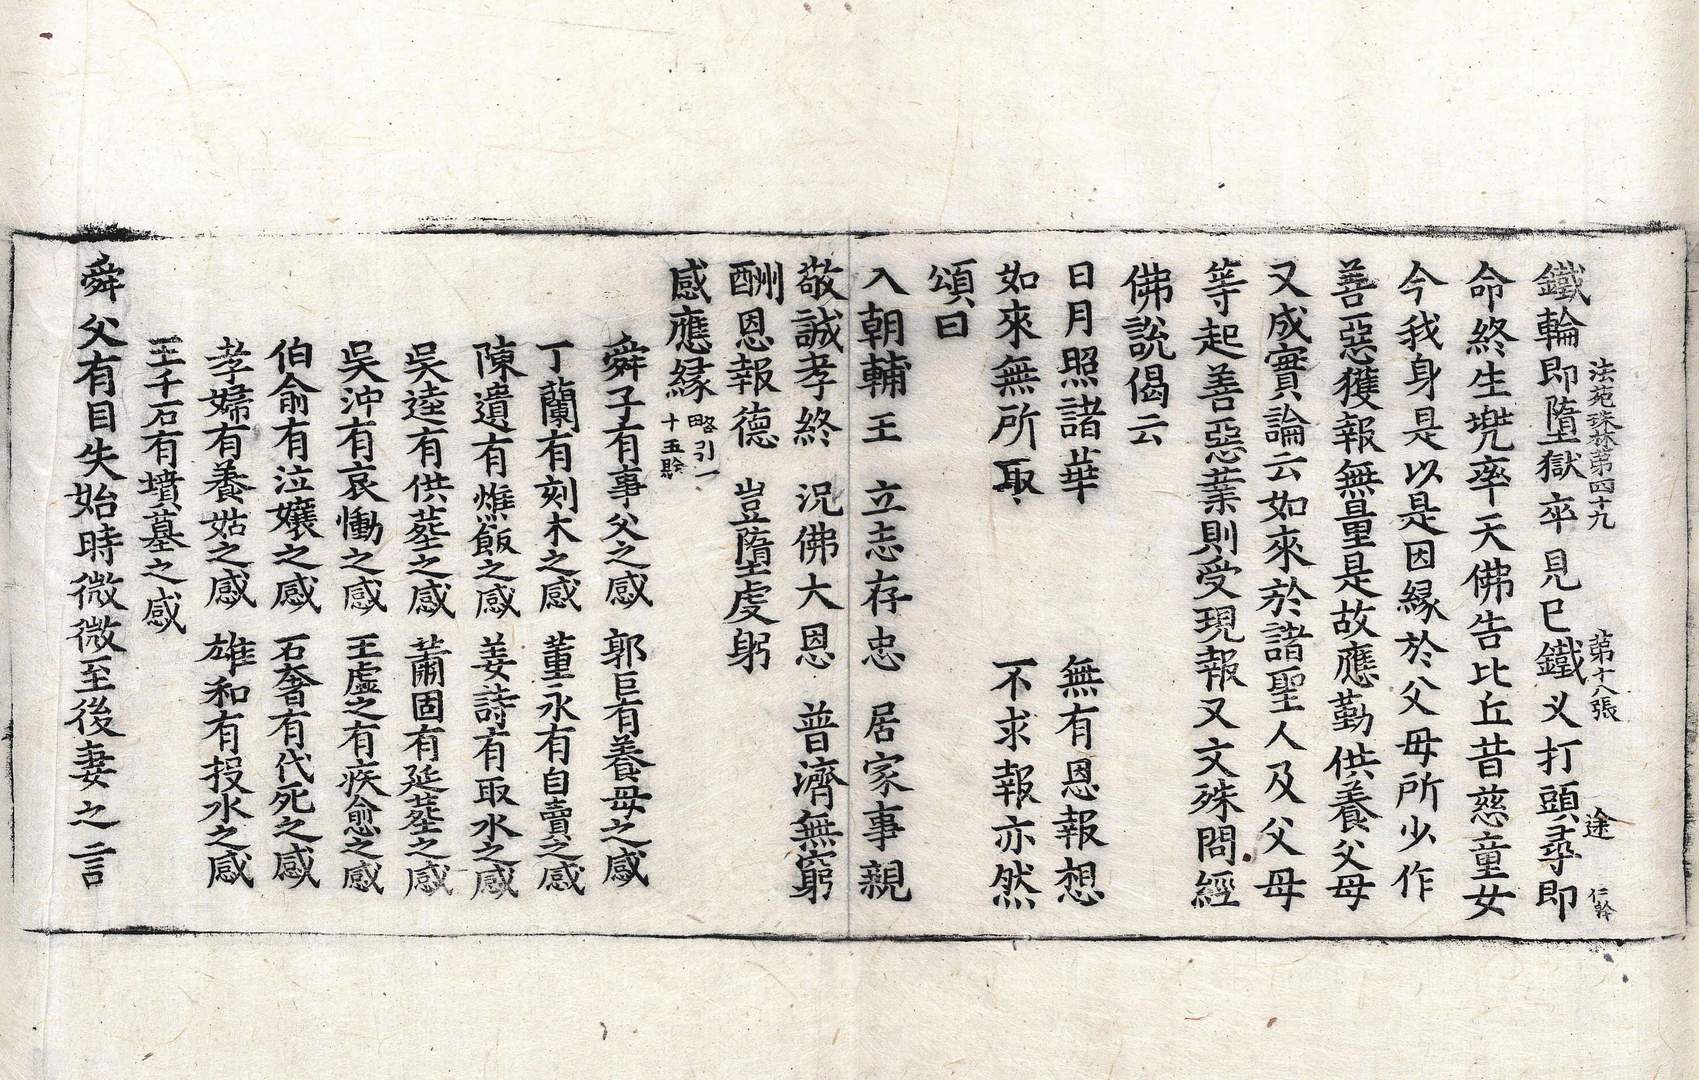 法苑珠林第四十九 第十八張 途 仁幹
鐵輪即墮獄卒見已鐵叉打頭尋即
命終生兠率天佛告比丘昔慈童女
今我身是以是因緣於父母所少作
善惡獲報無量是故應勤供養父母
又成實論云如來於諸聖人及父母
等起善惡業則受現報又文殊問經
佛說偈云
日月照諸華 無有恩報想
如來無所取 不求報亦然
頌曰
入朝輔王 立志存忠 居家事親
敬誠孝終 況佛大恩 普濟無窮
酬恩報德 豈墮虔躬
感應緣 略引一十五驗
舜子有事父之感 郭巨有養母之感
丁蘭有刻木之感 董永有自賣之感
陳遺有燋飯之感 姜詩有取水之感
吳逵有供葬之感 蕭固有延葬之感
吳沖有哀慟之感 王虛之有疾愈之感
伯俞有泣孃之感 石奢有代死之感
孝婦有養姑之感 雄和有投水之感
王千石有墳墓之感
舜父有目失始時微微至後妻之言